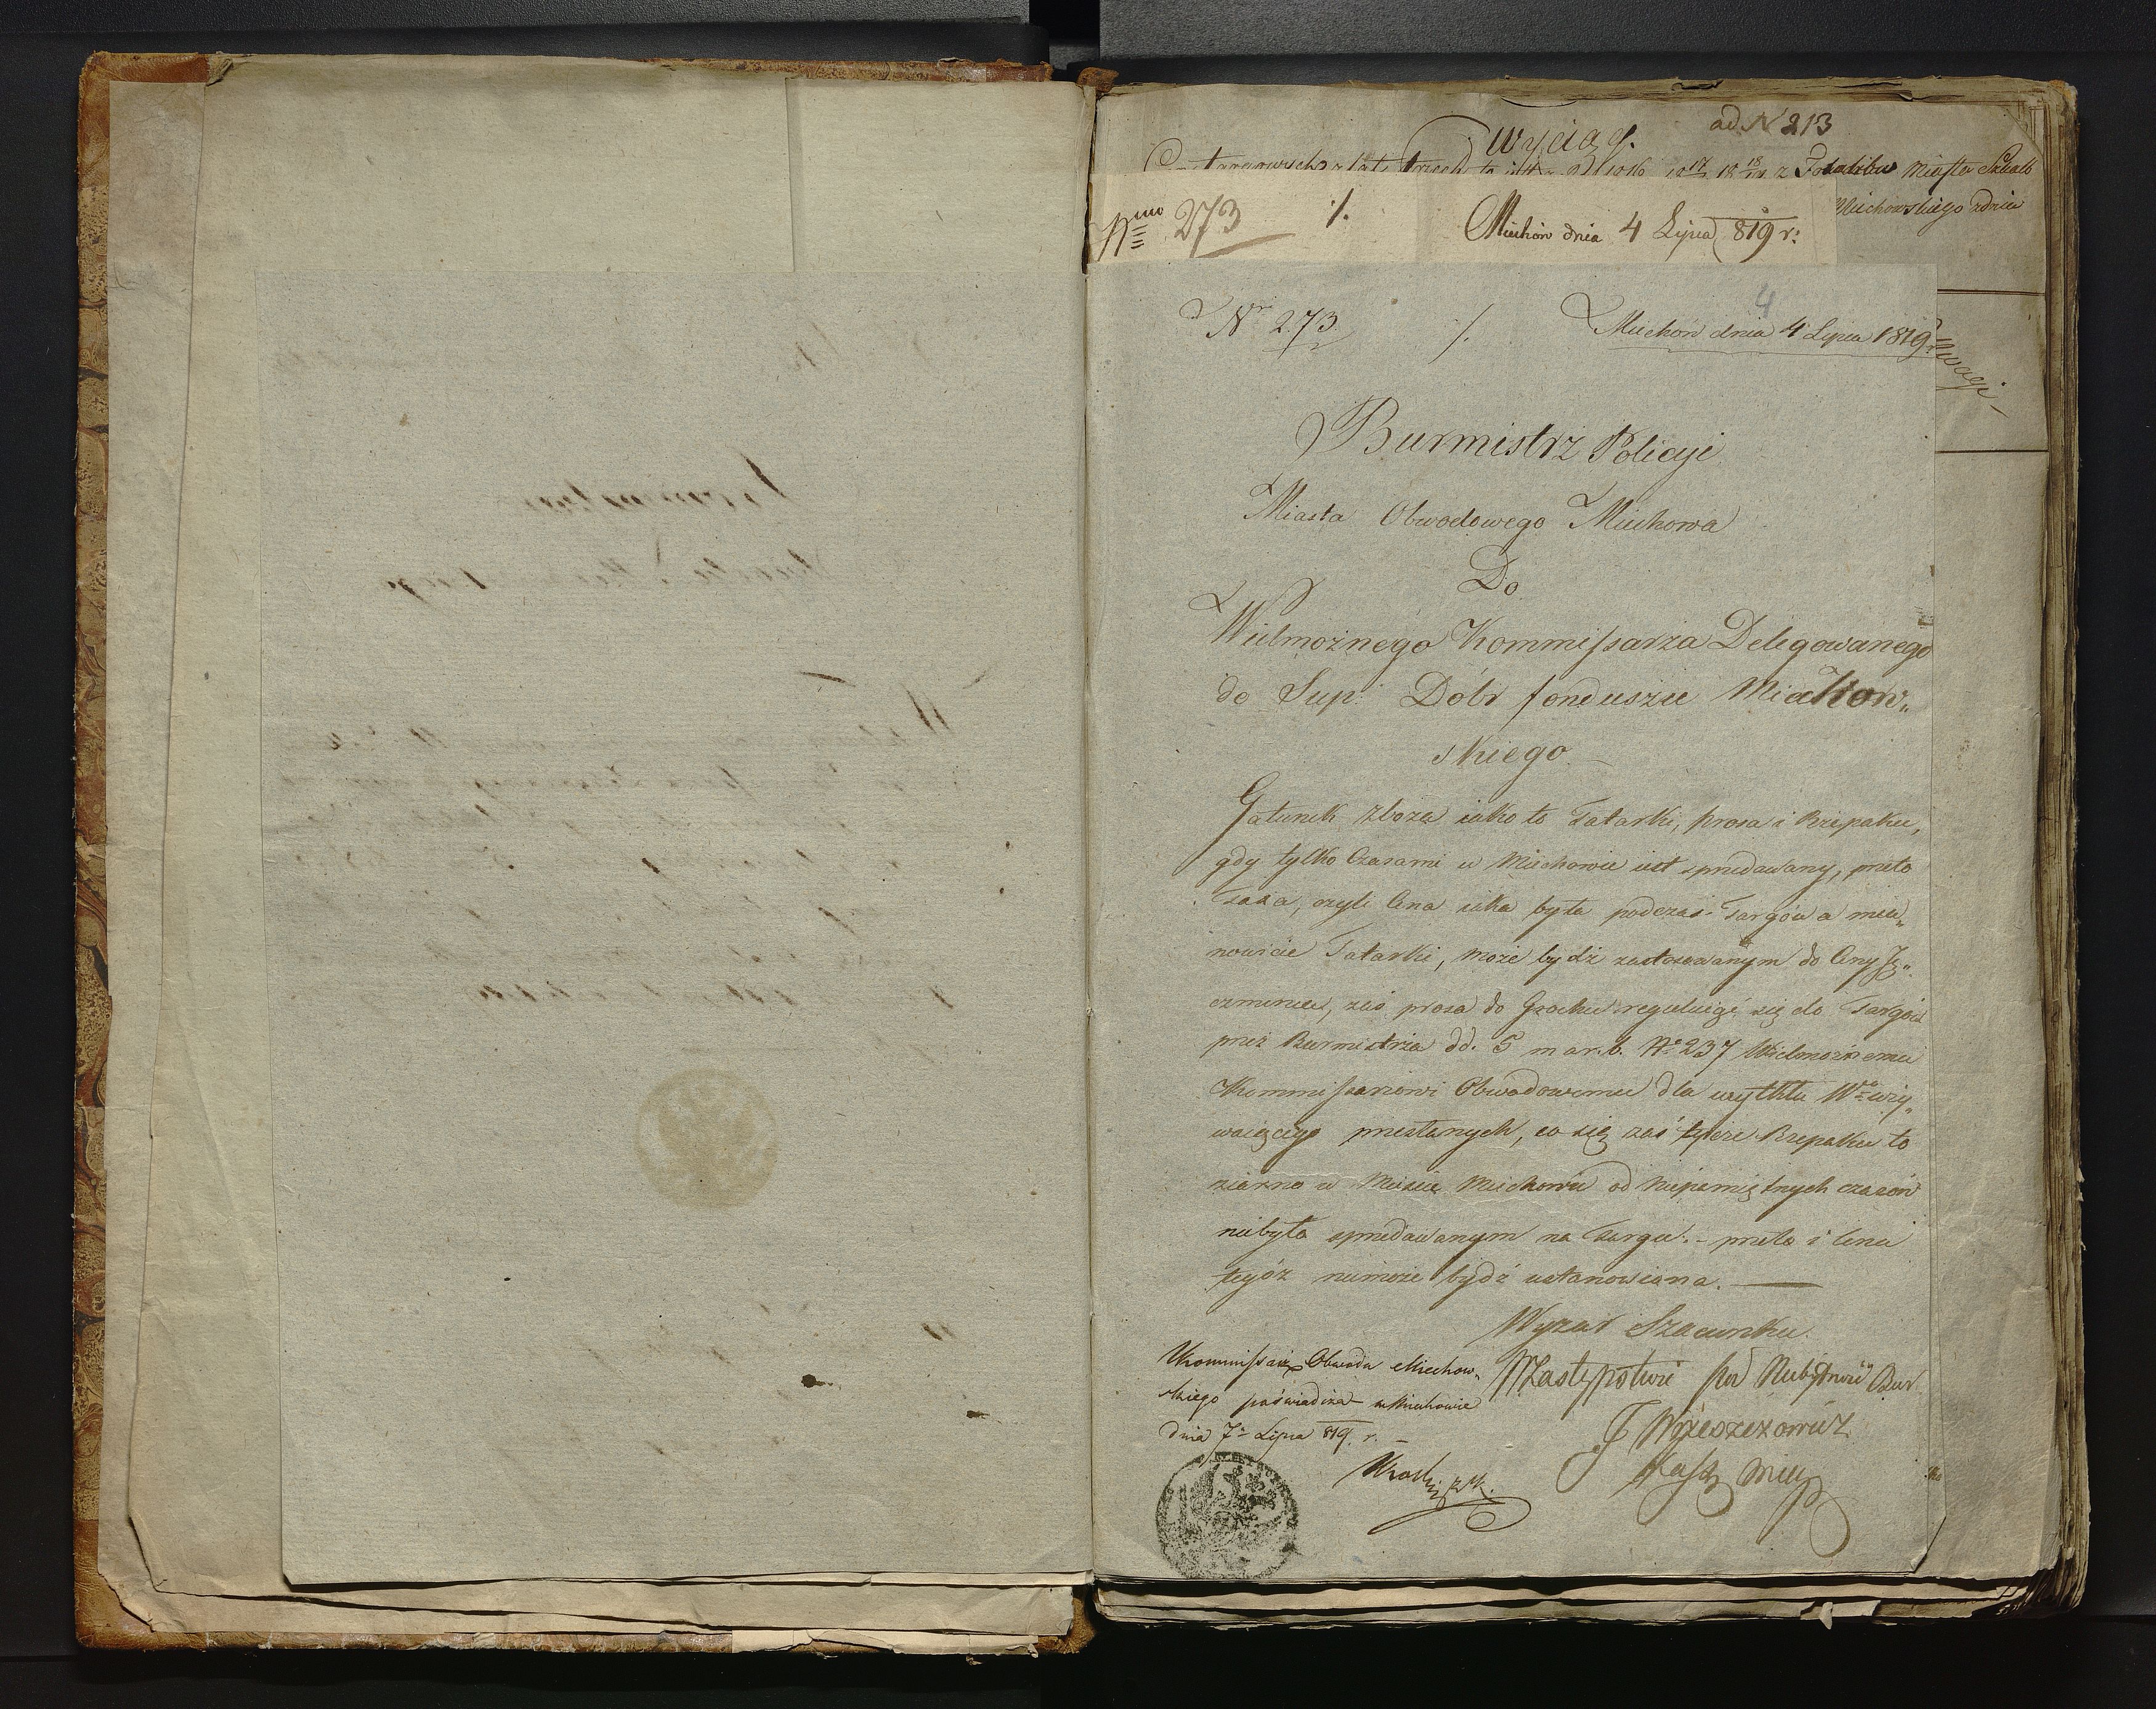 ad N 213
Wyciąg.
Miasta
Miechowskiego z dnia
Nmo 273 /.
Miechów dnia 4 Lipca 819 r:
4
Nr 273. /. Miechów dnia 4 Lipca 1819 r
Uwagi
Burmistrz Policyi
Miasta Obwodowego Miechowa
Do
Wielmożnego Kommissarza Delegowanego
do Sup: Dóbr funduszu Miechow„
skiego
Gatunek zboża iako to Tatarki, prosa i Rzepaku,
gdy tylko Czasami w Miechowie iest sprzedawany, przeto
Taxa, czyli Cena iaka była podczas Targów a mia„
nowicie Tatarki, może bydź zastosowanym do Ceny Ję„
czmienia, zaś prosa do Grochu reguluiąć się do Targów
przez Burmistrza dd. 5 m. a r. b. No 237 Wielmożnemu
Kommissarzowi Obwodowemu dla użytku Wo wzy„
waiącego przesłanych, co się zaś tycze Rzepaku to
ziarno w Mieście Miechowie od niepamiętnych czasów
niebyło sprzedawanym na Targu. – przeto i Cena
tegóż niemoże bydź ustanowiona. —
Wyraz Szacunku.
W Zastępstwie pod Niebytność Bur
J Wrzeszczowicz
Kass miey
Kommissarz Obwodu Miechow„
skiego poświadcza w Miechowie
dnia 7o Lipca 819. r. –